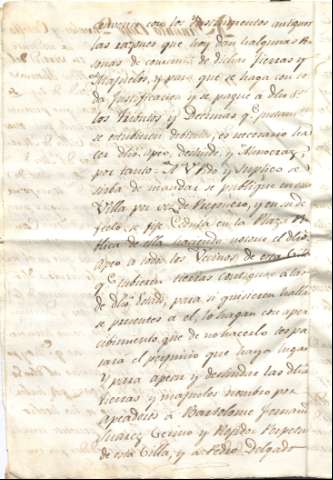 con los Instrumentos antiguos
las razones que hoy dan algunas Per
sonas de dichas tierras y
Majuelos, y para que se haga con to
da Justificacion y se pague a dho
los tributos y Decimas q.e
se estubieren debiendo, es necesario ha
cer dho Apeo, deslinde, y
por tanto = A V. pido y suplico se
sirba de mandar se publique en esta
Villa por voz de Pregonero, y en su de
fecto se fije Cedula en la Plaza Pu
blica de ella haciendo notorio el dho
Apeo a todos los Vecinos de esta Villa
q.e tubieren tierras contiguas a las
de dho Estado, para si quisieren hallar
se presentes a el, lo hagan con aper
cibimiento, que de no hacerlo les pa
rara el perjuicio que haya lugar
Y para apear y deslindar las dhas
tierras, y majuelos nombro por
Apeadores a Bartolome
Juarez y Rejidor Perpetuo
de esta Villa, y a Pedro Delgado